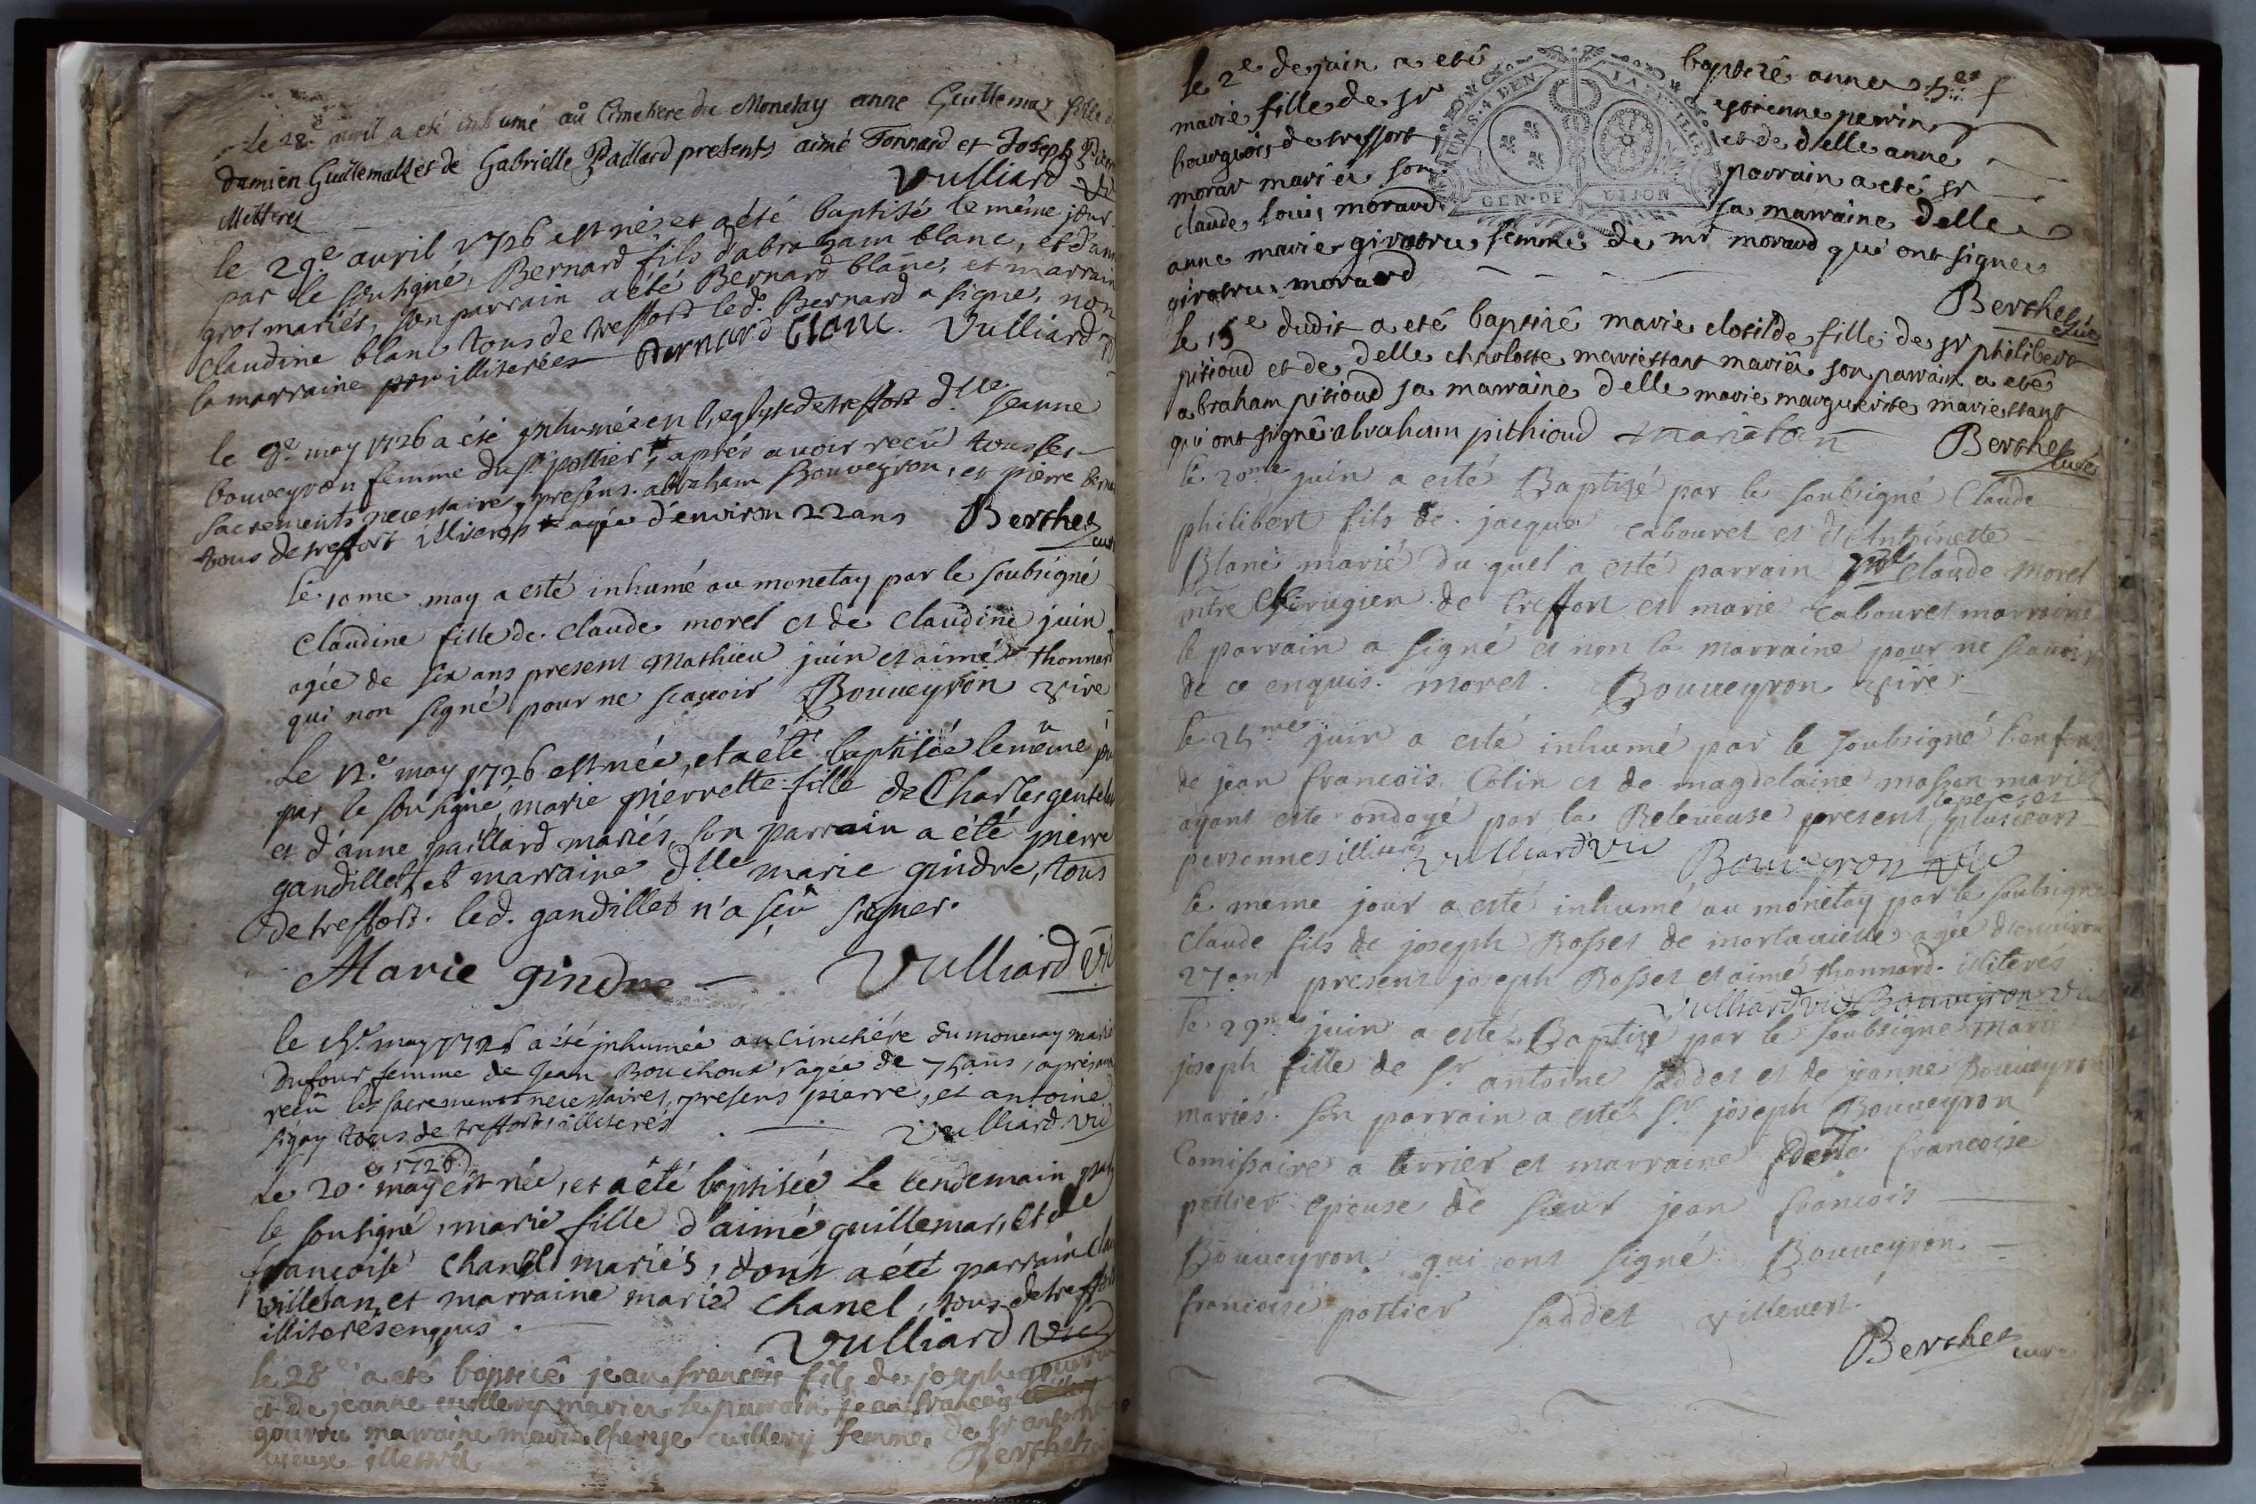 Le 28e avril a eté inhumé au Cimetiere du Monetay anne Guillemaz fille de
damien Guillemaz et de Gabrielle Paillard presents aimé Tonnard et Joseph
Vulliard
le 29e avril 1726 est né et a été baptisé le même jour
par le sousigné, Bernard fils d'abraham blanc, et d'anne
gros mariés, son parrain a été Bernard blanc, et marraine
Claudine blanc tous de treffort led. Bernard a signé, non
la marraine pour illiterées Bernard Clanc. Vulliard
le 9e may 1726 a été inhumée en l'eglise de treffort dlle Jeanne
bouveyron femme du sr pottier, aprés avoir reçû tous les
sacrements necessaires, presens abraham Bouveyron, et pierre
tous de treffort illiterés agée d'environ 22 ans Berthet
curé
le 10me may a esté inhumé au monetay par le soubsigné
Claudine fille de claude morel et de Claudine juin
agée de six ans present Mathieu juin et aimé thonnard
qui non signé pour ne scavoir Bouveyron vire
Le 12e may 1726 est née, et a été baptisée le même jour
par le sousigné, marie pierrette fille de Charles
et d'anne paillard mariés, son parrain a été pierre
gandillet et marraine dlle marie gindre, tous
de treffort. led. gandillet n'a sçû signer.
Marie gindre Vulliard Vic
le may 1726 a été inhumée au cimetiére du monetay marie
Dufour femme de Jean Bouchoux agée de ans, aprés avoir
reçû les sacrements necessaires, presens pierre, et antoine
tous de treffort illiterés Vulliard Vic
1726
Le 20e may est née, et a été baptisée le lendemain par
le sousigné, marie fille d'aimé guillemaz, et de
françoise Chanel mariés, dont a été parrain
villetan, et marraine marie Chanel, tous de treffort
illiterés enquis. Vulliard Vic
le 28e a eté baptisé jean françois fils de joseph gourru
et de jeanne cuillery mariés le parrain jean françois
gourru marraine marie therese cuillery femme de sr
illetré Berthet
le 2e de juin a eté baptisé anne
marie fille de sr estienne perrin
bourgeois de treffort et de delle anne
morar mariés son parrain a eté sr
claude louis morard sa marraine delle
anne marie girostru femme de mr morard qui ont signé
girostru morard Berthet
curé
GEN·DE DIJON
le 15e dudit a eté baptisé marie clotilde fille de sr philibert
pitioud et de delle charlotte mariettant mariés son parrain a eté
abraham pitioud sa marraine delle marie marguerite mariettant
qui ont signé abraham pithioud Berthet
curé
le 20me juin a esté Baptisé par le soubsigné Claude
philibert fils de jacque cabouret et d'Antoinette
Blanc marié du quel a esté parrain Claude Morel
mtre Chirugien de treffort et marie Cabouret marraine
le parrain a signé et non la marraine pour ne scavoir
de ce enquis. morel. Bouveyron vire
le 25me juin a esté inhumé par le soubsigné l'enfant
de jean francois Colin et de magdelaine mariés
ayant esté ondoyé par la Releveuse present le pere et plusieurs
personnes illiterés Vulliard Vic Bouveyron Vic
le meme jour a esté inhumé au monetay par le soubsigné
Claude fils de joseph Rosset de agée d'environ
27 ans present joseph Rosset et aimé thonnard illiterés
Vulliard Vic Bouveyron Vic
le 29me juin a esté Baptisé par le soubsigné marie
joseph fille de sr antoine saddet et de jeanne Bouveyron
mariés. son parrain a esté sr joseph Bouveyron
Comissaire a terrier et marraine delle francoise
pottier epouse de sieur jean francois
Bouveyron qui ont signé Bouveyron
francoise pottier saddet Villevert
Berthet
curé